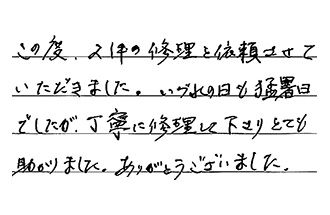 この度、2件の修理を依頼させて
いただきました。いづれの日も猛暑日
でしたが、丁寧に修理して下さりとても
助かりました。ありがとうございました。